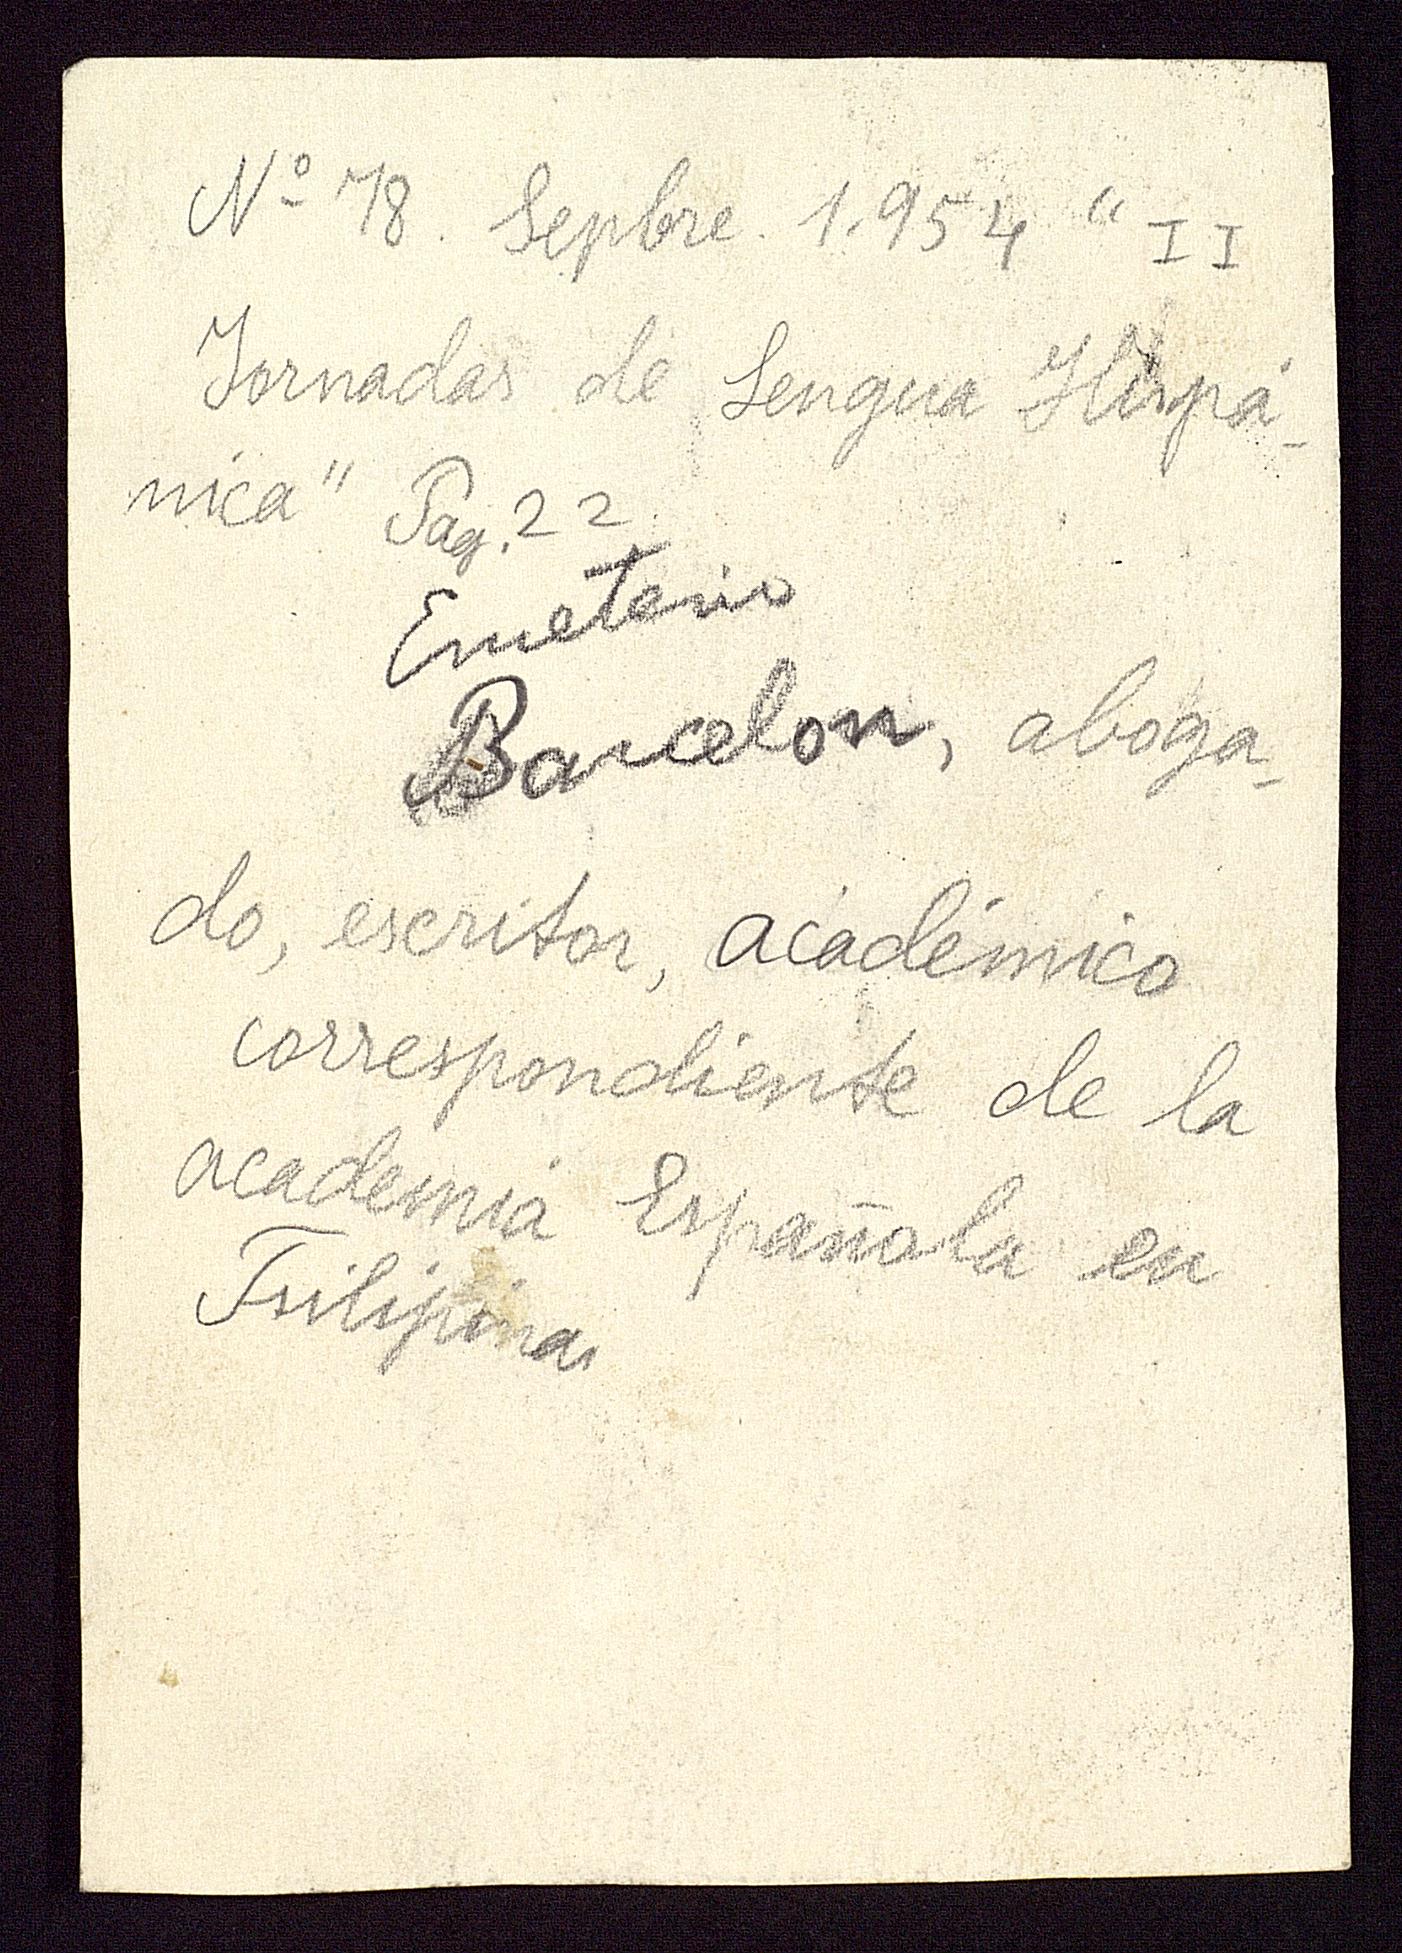 Nº 78. Sepbre. 1.954 "II
Jornadas de Lengua Hispá-
nica" Pag. 22
Emeterio
Barcelon, aboga-
do, escritor, académico
correspondiente de la
academia Española en
Filipinas